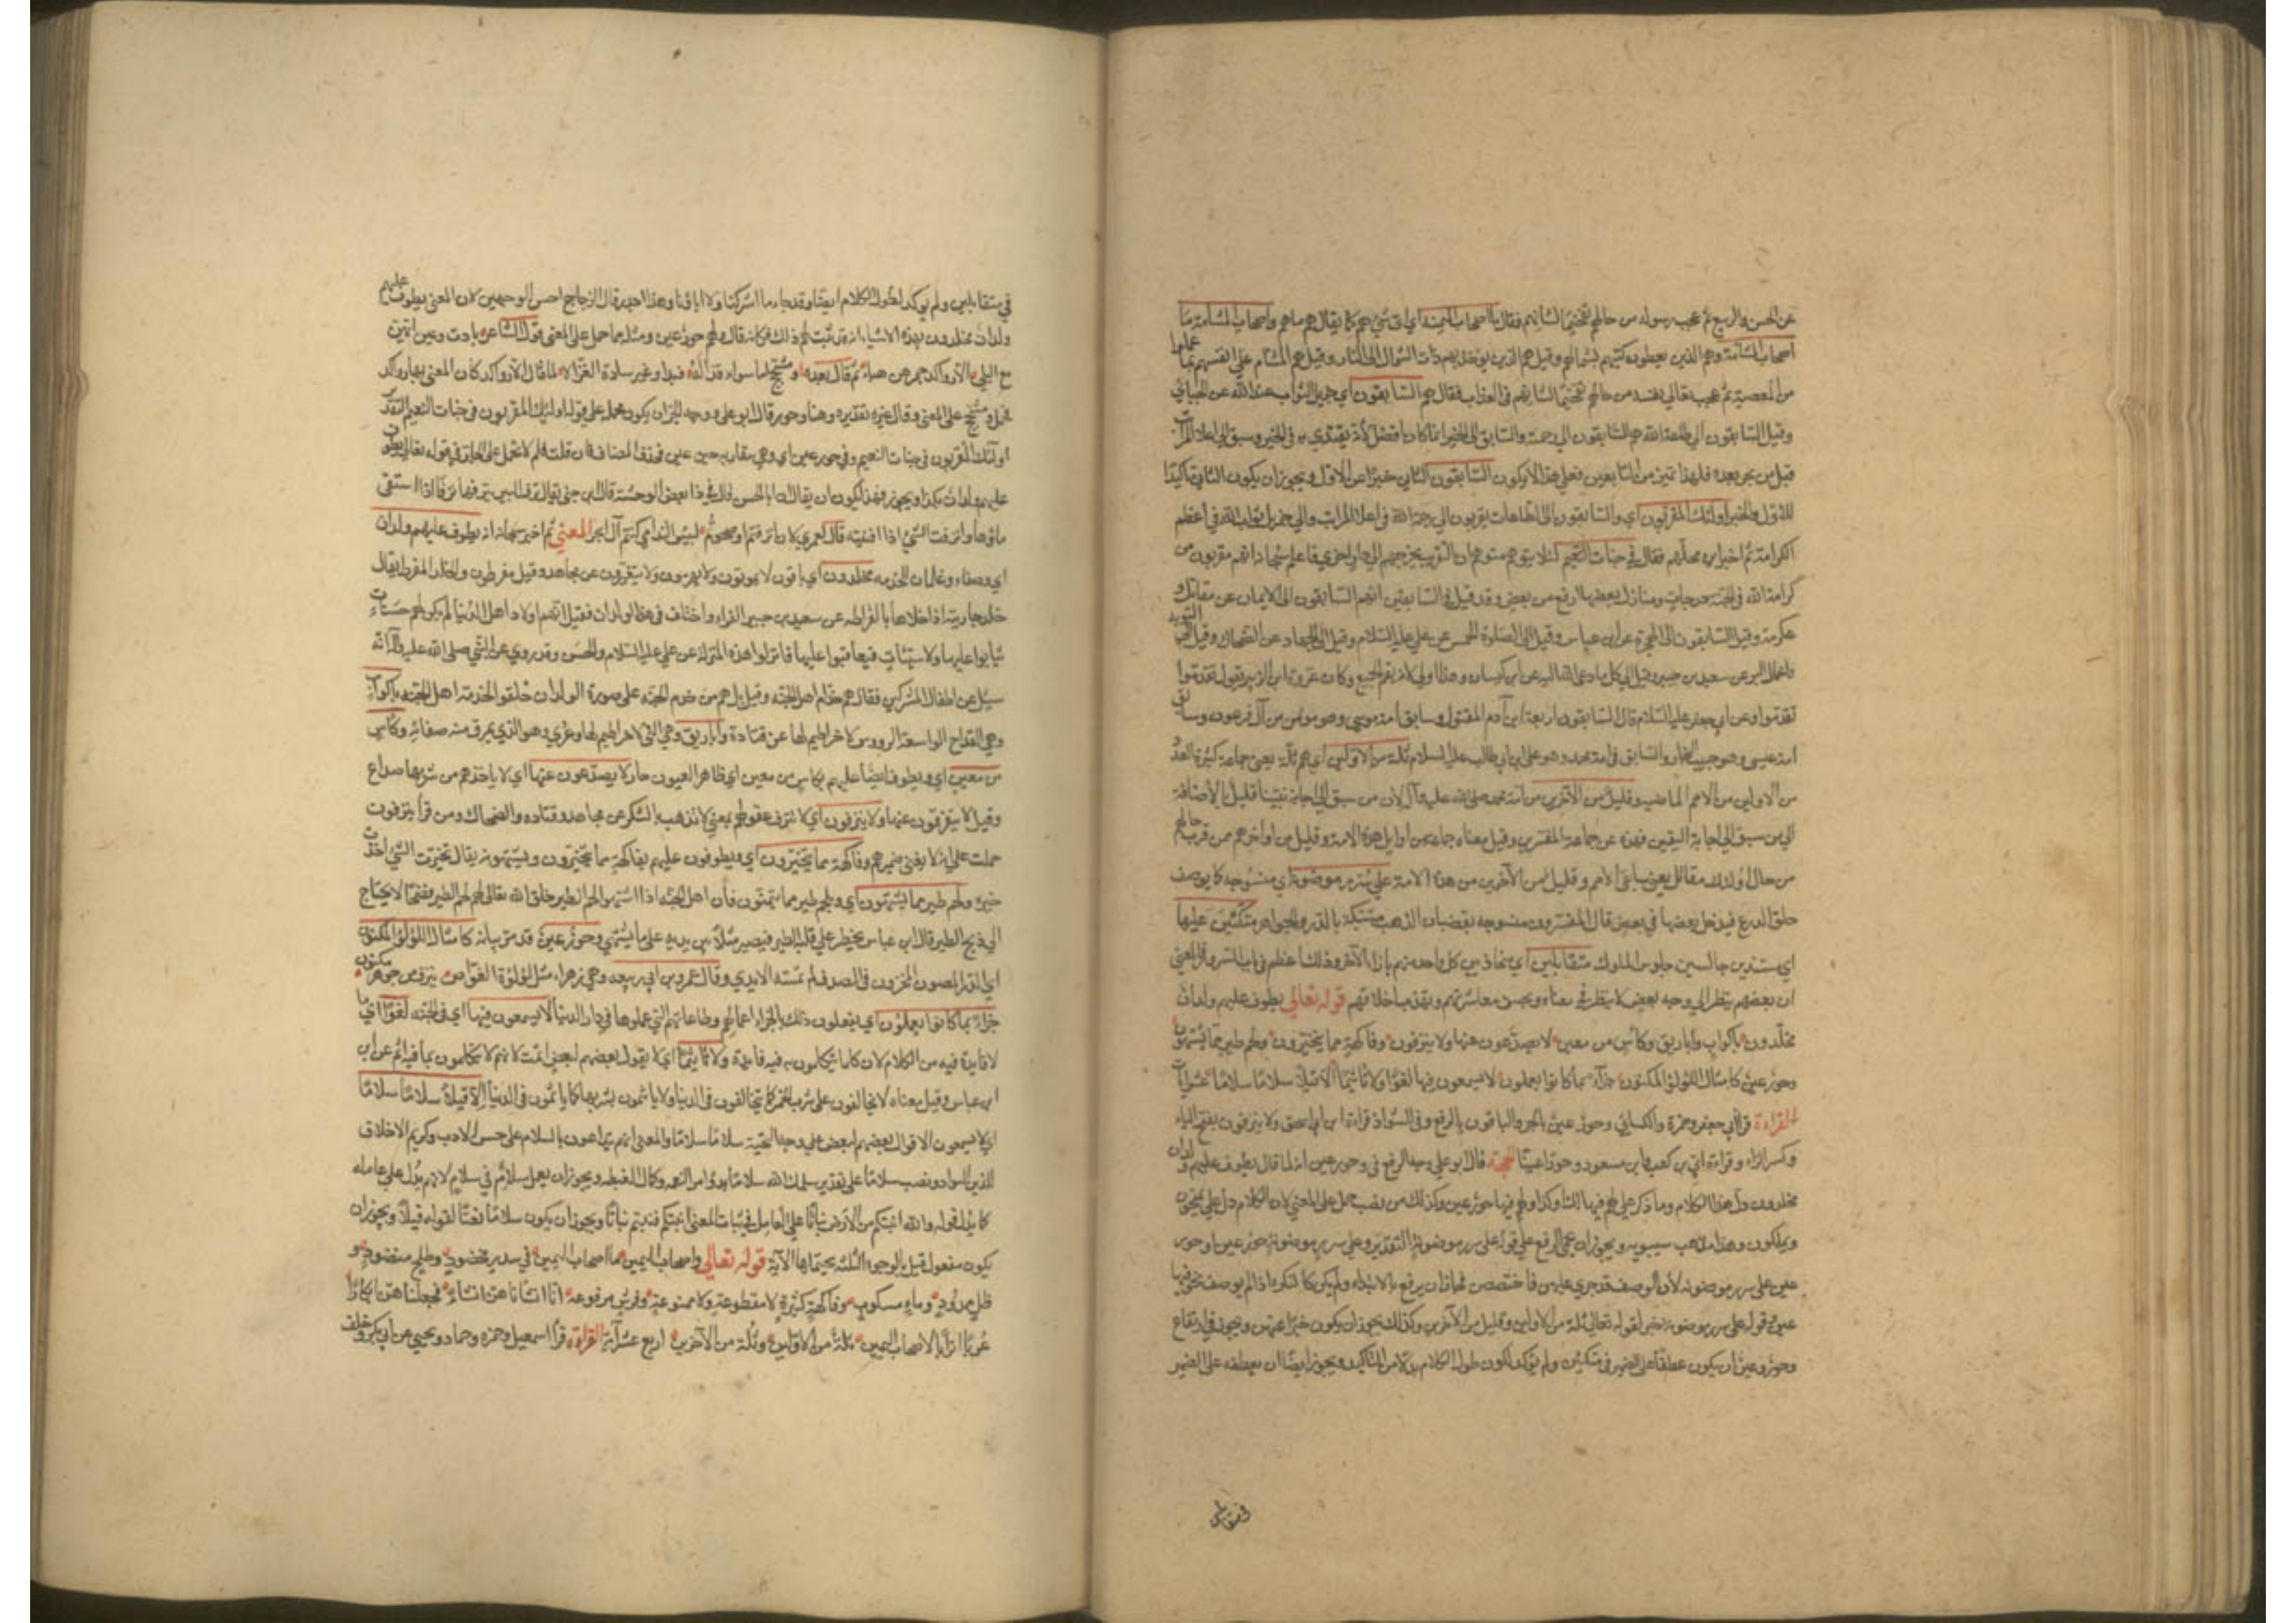 عن الحسن والربيع ثم عجب رسوله من حالهم تفخيما لشانهم فقال ما اصحاب الميمنة اي اي شيء هم كما يقال هم ما هم واصحاب المشامة ما
اصحاب المشامة وهم الذين يعطون كتبهم بشمالهم وقيل هم الذين يوخذ بهم ذات الشمال الى النار وقيل هم المشائم على انفسهم بما عملوا
من المعصية ثم عجب تعالى نفسه من حالهم تفخيما لشانهم في العذاب فقال هم السابقون اي جزيل الثواب عند الله عن الجبائي
وقيل السابقون الى طاعة الله هم السابقون الى رحمته والسابق الى الخير انما كان افضل لانه يقتدى به في الخير وسبق الى اعلا المراتب
قبل من يجي بعده فلهذا تميز من التابعين فعلى هذا لا يكون السابقون الثاني خبرا عن الاول ويجوز ان يكون الثاني تاكيدا
للاول والخبر اولئك المقربون اي والسابقون الى الطاعات يقربون الى رحمة الله في اعلا المراتب والى جزيل ثواب الله في اعظم
الكرامة ثم اخبر اين محلهم فقال في جنات النعيم لئلا يتوهم متوهم ان التقريب يخرجهم الى دار اخرى فاعلم سبحانه انهم مقربون من
كرامة الله في الجنة درجات ومنازل بعضها ارفع من بعض وقد قيل في السابقين انهم السابقون الى الايمان عن مقاتل و
عكرمة وقيل السابقون الى الهجرة عن ابن عباس وقيل الى الصلوة الخمس عن علي عليه السلام وقيل الى الجهاد عن الضحاك وقيل الى التوبة
واعمال البر عن سعيد بن جبير وقيل الى كل ما دعى الله اليه عن ابن كيسان وهذا اولى لانه يعم الجميع وكان عروة ابن الزبير يقول تقدموا
تقدموا وعن ابي جعفر عليه السلام قال السابقون اربعة ابن آدم المقتول وسابق امة موسى وهو مؤمن من آل فرعون وسابق
امة عيسى وهو حبيب النجار والسابق في امة محمد وهو علي بن ابي طالب عليه السلام ثلة من الاولين اي هم ثلة يعني جماعة كثيرة العدد
من الاولين من الامم الماضية وقليل من الآخرين من امة محمد صلى الله عليه وآله لان من سبق الى اجابة نبينا قليل بالاضافة
الى من سبق الى اجابة النبيين قبله عن جماعة المفسرين وقيل معناه جماعة من اوايل هذه الامة وقليل من اواخرهم ممن قرب حالهم
من حال اولئك مقاتل يعني سابقي الامم وقليل من الآخرين من هذه الامة على سرر موضونة اي منسوجة كما يوصف
حلق الدرع فيدخل بعضها في بعض قال المفسرون منسوجة بقضبان الذهب مشبكة بالدر والجواهر متكئين عليها
اي مستندين جالسين جلوس الملوك متقابلين اي متحاذيين كل واحد منهم بازاء الآخر وذلك اعظم في باب السرور والمعنى
ان بعضهم ينظر الى وجه بعض لا ينظر في قفاه ويحسن معاشرتهم وتهذب اخلاقهم قوله تعالى يطوف عليهم ولدان
مخلدون باكواب واباريق وكاس من معين لا يصدعون عنها ولا ينزفون وفاكهة مما يتخيرون ولحم طير مما يشتهون
وحور عين كامثال اللؤلؤ المكنون جزاء بما كانوا يعملون لا يسمعون فيها لغوا ولا تاثيما الا قيلا سلاما سلاما عشر آيات
القراءة قرأ ابو جعفر وحمزة والكسائي وحور عين بالجر والباقون بالرفع وفي الشواذ قراءة ابن ابي اسحق ولا ينزفون بفتح الياء
وكسر الزاء وقراءة ابي بن كعب وابن مسعود وحورا عينا الحجة قال ابو علي وجه الرفع في وحور عين انه لما قال يطوف عليهم ولدان
مخلدون دل هذا الكلام وما ذكر على لهم فيها كذا وكذا ولهم فيها حور عين وكذلك من نصب حمل على المعنى لان الكلام دل على يمنحون
ويملكون وهذا مذهب سيبويه ويجوز ان يحمل الرفع على قوله على سرر موضونة التقدير وعلى سرر موضونة حور عين او حور
عين على سرر موضونة لان الوصف قد جرى عليهن فاختصص فجاز ان يرفع بالابتداء ولم يكن كالنكرة اذا لم يوصف نحو فيها
عين وقوله على سرر موضونة خبر لقوله تعالى ثلة من الاولين وقليل من الآخرين وكذلك يجوز ان يكون خبرا عنهن ويجوز في ارتفاع
وحور عين ان يكون عطفا على الضمير في متكئين ولم يؤكد لكون طول الكلام بدلا من التاكيد ويجوز ايضا ان يعطفه على الضمير
في متقابلين
في متقابلين ولم يوكد لطول الكلام ايضا وقد جاء ما اشركنا ولا اباؤنا وهذا اجدر قال الزجاج احسن الوجهين لان المعنى يطوف عليهم
ولدان مخلدون بهذه الاشياء انه قد ثبت لهم ذلك فكانه قال ولهم حور عين ومثله مما حمل على المعنى قول الشاعر بادت وغير آيهن
مع البلى الا رواكد جمرهن هباء ثم قال بعده ومشجج اما سواء قذاله فبدا وغير ساره المعزاء لما قال الا رواكد كان المعنى بها رواكد
فحمل ومشجج على المعنى وقال غيره تقديره وهناك حور قال ابو علي ووجه الجر ان يكون يحمله على قوله اولئك المقربون في جنات النعيم التقدير
اولئك المقربون في جنات النعيم وفي حور عين اي وفي مقاربة حور عين فحذف المضاف فان قلت فلم لا تحمل على الجار في قوله تعالى يطوف
عليهم ولدان بكذا ويجوز فهذا يمكن ان يقال الا ان ابا الحسن قال في ذا بعض الوحشة قال ابن جني يقال نزف البئر ينزفها نزفا اذا استقى
ماؤها وانزفت الشيء اذا افنيته قال لعمري لان انزفتم او صحوتم لبئس الندامى كنتم آل ابجرا المعنى ثم اخبر سبحانه انه يطوف عليهم ولدان
اي وصفاء وغلمان للخدمة مخلدون اي باقون لا يموتون ولا يهرمون ولا يتغيرون عن مجاهد وقيل مقرطون والخلد القرط يقال
خلد جاريته اذا حلاها بالقرطة عن سعيد بن جبير والفراء واختلف في هذه الولدان فقيل انهم اولاد اهل الدنيا لم يكن لهم حسنات
يثابوا عليها ولا سيئات فيعاقبوا عليها فانزلوا هذه المنزلة عن علي عليه السلام والحسن وقد روي عن النبي صلى الله عليه وآله انه
سئل عن اطفال المشركين فقال هم خدام اهل الجنة وقيل بل هم من خدم الجنة على صورة الولدان خلقوا لخدمة اهل الجنة باكواب
وهي القداح الواسعة الرؤوس لا خراطيم لها عن قتادة واباريق وهي التي لها خراطيم وعرى وهو الذي يبرق من صفائه وكاس
من معين اي ويطوف ايضا عليهم بكاس من معين اي ظاهر العيون جار لا يصدعون عنها اي لا ياخذهم من شربها صداع
وقيل لا يتفرقون عنها ولا ينزفون اي لا تنزف عقولهم بمعنى لا تذهب بالسكر عن مجاهد وقتادة والضحاك ومن قرأ ينزفون
حملت على انه لا يفنى خمرهم وفاكهة مما يتخيرون اي ويطوفون عليهم بفاكهة مما يتخيرون ويشتهون يقال تخيرت الشيء اخذت
خيره ولحم طير مما يشتهون اي وبلحم طير مما يتمنون فان اهل الجنة اذا اشتهوا لحم الطير خلق الله تعالى لهم لحم الطير نضيجا لا يحتاج
الى ذبح الطير قال ابن عباس يخطر على قلبه الطير فيصير ممثلا بين يديه على ما يشتهي وحور عين قد مر بيانه كامثال اللؤلؤ المكنون
اي الدر المصون المخزون في الصدف لم تمسه الايدي وقال عمرو بن ابي ربيعة وهي زهراء مثل لؤلؤة الغواص ميزت من جوهر مكنون
جزاء بما كانوا يعملون اي يفعلون ذلك بهم لجزاء اعمالهم وطاعاتهم التي عملوها في دار الدنيا لا يسمعون فيها اي في الجنة لغوا اي ما
لا فايدة فيه من الكلام لان كل ما يتكلمون به فيه فايدة ولا تاثيما اي لا يقول بعضهم لبعض اثمت لانهم لا يتكلمون بما فيه اثم عن
ابن عباس وقيل معناه لا يتخالفون على شرب الخمر كما يتخالفون في الدنيا ولا ياثمون بشربها كما ياثمون في الدنيا الا قيلا سلاما سلاما
اي لا يسمعون الا قول بعضهم لبعض على وجه التحية سلاما سلاما والمعنى انهم يتداعون بالسلام على حسن الادب وكريم الاخلاق
الذين للتواد ونصب سلاما على تقدير سلمك الله سلاما بدوام النعمة وكمال الغبطة ويجوز ان يعمل سلام في سلام لانه يدل على عامله
كما يدل قوله والله انبتكم من الارض نباتا على العامل في نبات المعنى انبتكم فنبتم نباتا ويجوز ان يكون سلاما نعتا لقوله قيلا ويجوز ان
يكون مفعول قيل فالوجوه الثلثة يحتملها الآية قوله تعالى واصحاب اليمين ما اصحاب اليمين في سدر مخضود وطلح منضود و
ظل ممدود وماء مسكوب وفاكهة كثيرة لا مقطوعة ولا ممنوعة وفرش مرفوعة انا انشاناهن انشاء فجعلناهن ابكارا
عربا اترابا لاصحاب اليمين ثلة من الاولين وثلة من الآخرين اربع عشر آية القراءة قرأ اسمعيل وحمزة وحماد ويحيى عن ابي بكر وخلف